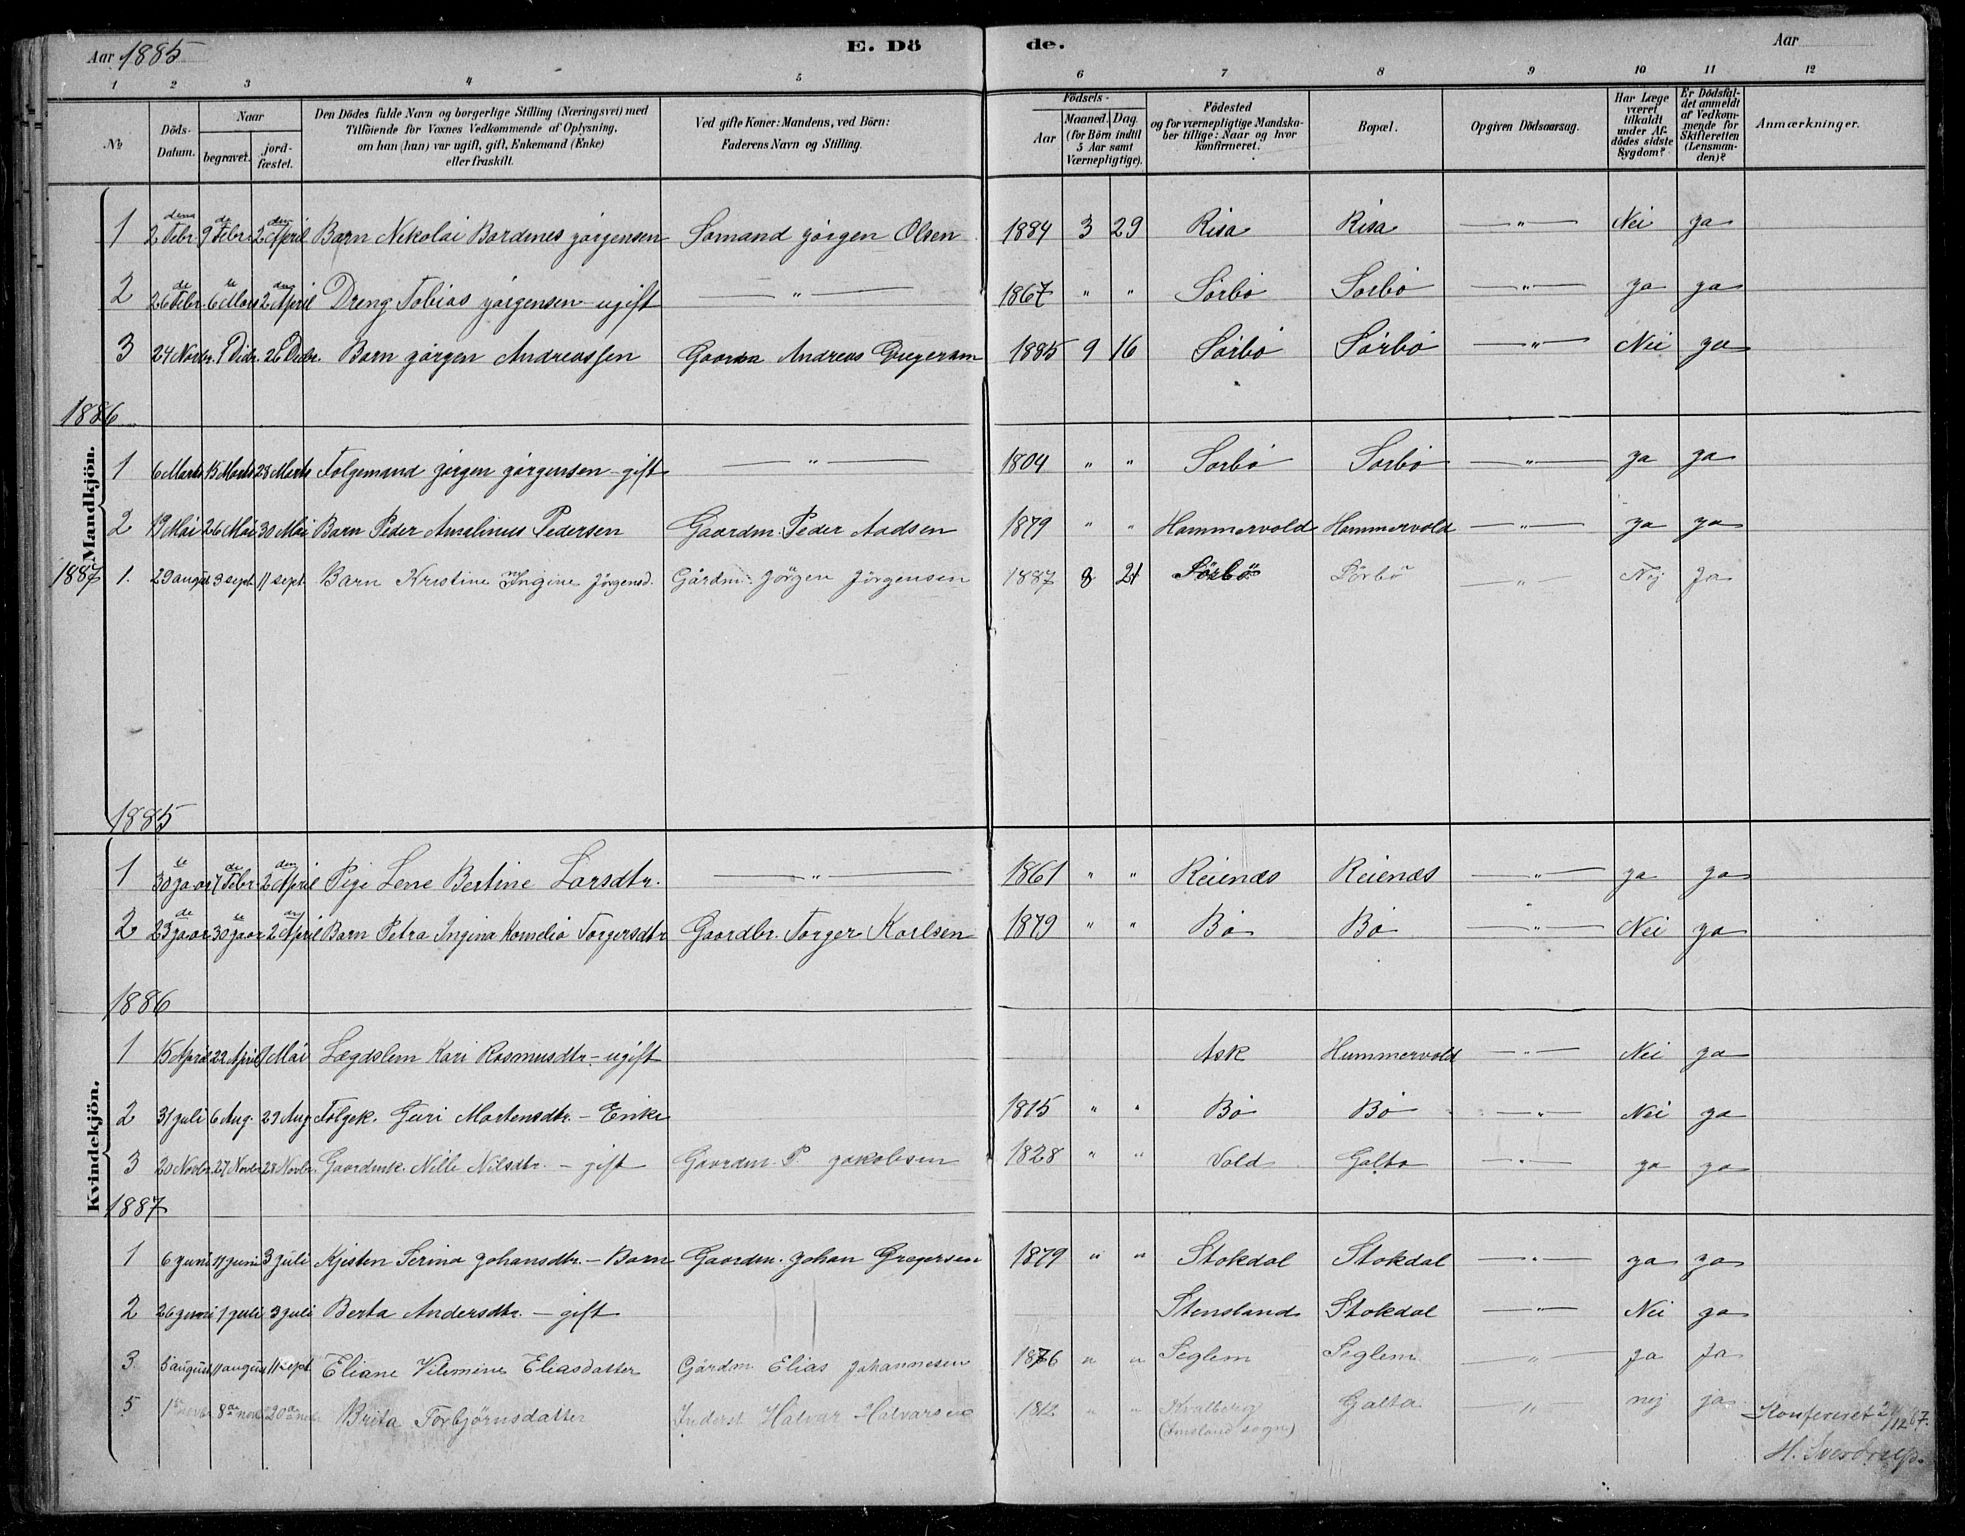 Aar 1885 E. Dö de. Aar
1 2 3 4 5 6 7 8 9 10 11 12
№ Döds-Datum. Naar begravet. jord-fæstet. Den Dödes fulde Navn og borgerlige Stilling (Næringsvei) med Tilföiende for Voxnes Vedkommende af Oplysning, om han (hun) var ugift, gift, Enkemand (Enke) eller fraskilt. Ved gifte Koner: Mandens, ved Börn: Faderens Navn og Stilling. Födsels- Aar Maaned. Dag (for Börn indtil 5 Aar samt Værnepligtige). Födested og for værnepligtige Mandskaber tillige: Naar og hvor Konfirmeret. Bopæl. Opgiven Dödsaarsag. Har Læge været tilkaldt under Afdödes sidste Sygdom? Er Dödsfaldet anmeldt af Vedkommende for Skifteretten (Lensmanden)? Anmærkninger.
Mandkjön.
1 2 Febr 9de Febr 2den April Barn Nikolai Bardines Jørgensen Sømand Jørgen Olsen 1884 3 29 Risa Risa — " — Nei ja
2 26de Febr. 6te Mars 2den April Dreng Tobias Jørgensen – ugift — " — 1867 " " Sørbø Sørbø — " — ja ja
3 24 Novbr. 1 Decbr. 26 Decbr. Barn Jørgen Andreassen Gaardm Andreas Gregersen 1885 9 16 Sørbø Sørbø — " — Nei ja
1886
1 6 Marts 13 Marts 28 Marts Følgemand Jørgen Jørgensen – gift — " — 1804 " " Sørbø Sørbø — " — ja ja
2 19 Mai 26 Mai 30 Mai Barn Peder Amalinus Pedersen Gaardm. Peder Aadsen 1879 " " Hammervold Hammervold — " — ja ja
1887 1. 29 august 3 sept. 11 sept. Barn Kristine Ingine Jörgensd. Gårdm. Jörgen Jörgensen 1887 8 21 Sörbö Sörbö — " — Nej Ja
1885
Kvindekjön.
1 30te jaar 7de Febr. 2den April Pige Lene Bertine Larsdtr. — " — 1861 " " Reienæs Reienæs — " — ja ja
2 23de jaar 30te jaar 2den April Barn Petra Ingina Kornelia Torgersdtr Gaardbr. Torger Karlsen 1879 " " Bø Bø — " — Nei ja
1886
1 15 April 22 April 9 Mai Lægdslem Kari Rasmusdtr. – ugift Ask Hammervold — " — Nei ja
2 31 juli 6 Aug. 29 Aug Følgek. Guri Mortensdtr. – Enke 1815 " " Bø Bø — " — Nei ja
3 20 Novbr. 27 Novbr 28 Novbr. Gaardmk. Nille Nilsdtr. – gift Gaardm. P. Jakobsen 1828 " " Vold Galta — " — ja ja
1887
1 6 juni 11 juni 3 juli Kjisten Serina Johansdtr. – Barn Gaardm. Johan Gregersen 1879 " " Stokdal Stokdal — " — ja ja
2 26 juni 1 juli 3 juli Berta Andersdtr. – gift Stensland Stokdal — " — Nei ja
3 5 august 11 august 11 sept. Eliane Vilemine Eliasdatter Gårdm. Elias Johannesen 1876 " " Seglem Seglem — " — Ja Ja
5 1ste novbr 8de nov 20de nov Brita Torbjørnsdatter Inderst Halvar Halvarsen 1812 " " Kvalberg (Imsland sogn) Galta — " — nej ja
Konfereret 2/12 87.
H. Sverdrup.